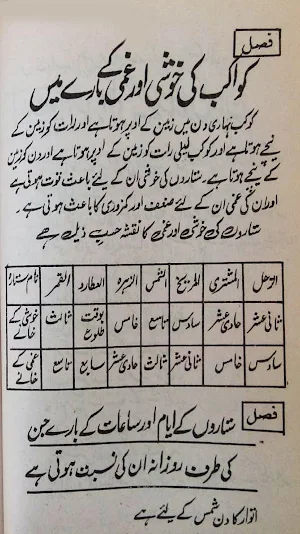 فصل
کواکب کی خوشی اور غمی کے
بارے میں
کوکب نہاری دن میں زمین کے اوپر ہوتا ہے اور رات کو زمین کے
نیچے ہوتا ہے اور کوکب لیلی رات کو زمین کے اوپر ہوتا ہے اور دن کو زمین
کے نیچے ہوتا ہے۔ ستاروں کی خوشی ان کے لئے باعث قوت ہوتی ہے
اور ان کی غمی ان کے لئے ضعف اور کمزوری کا باعث ہوتی ہے۔
ستاروں کی خوشی اور غمی کا نقشہ حسب ذیل ہے
نام ستارہ القمر العطارد الزہرہ الشمس المریخ المشتری الزحل
خوشی کے خانے ثالث بوقت طلوع خامس تاسع سادس حادی عشر ثانی عشر
غمی کے خانے تاسع سابع حادی عشر ثالث ثانی عشر خامس سادس
فصل
ستاروں کے ایام اور ساعات کے بارے جن
کی طرف روزانہ ان کی نسبت ہوتی ہے
اتوار کا دن شمس کے لیئے ہے